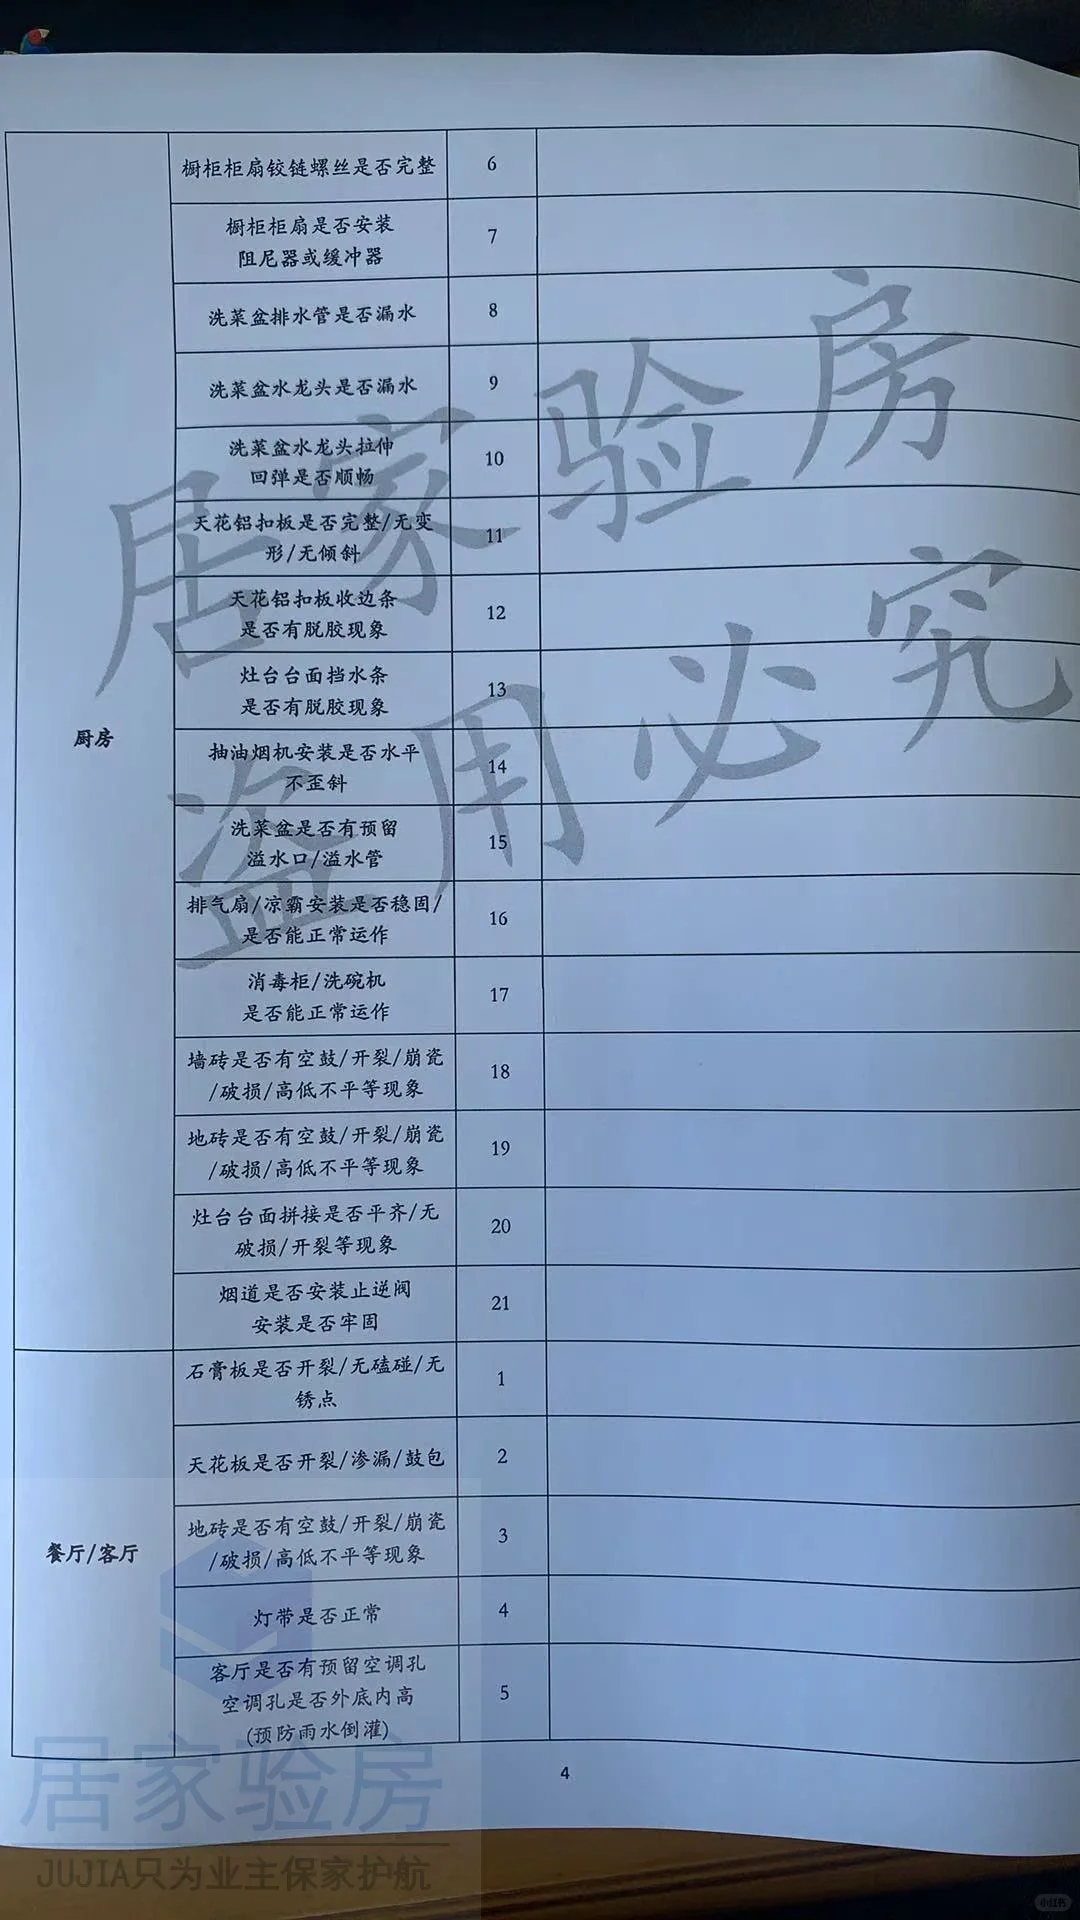 橱柜柜扇铰链螺丝是否完整
6
橱柜柜扇是否安装
阻尼器或缓冲器
7
洗菜盆排水管是否漏水
8
洗菜盆水龙头是否漏水
9
洗菜盆水龙头拉伸
回弹是否顺畅
10
天花铝扣板是否完整/无变
形/无倾斜
11
天花铝扣板收边条
是否有脱胶现象
12
灶台台面挡水条
是否有脱胶现象
13
厨房
抽油烟机安装是否水平
不歪斜
14
洗菜盆是否有预留
溢水口/溢水管
15
排气扇/凉霸安装是否稳固/
是否能正常运作
16
消毒柜/洗碗机
是否能正常运作
17
墙砖是否有空鼓/开裂/崩瓷
/破损/高低不平等现象
18
地砖是否有空鼓/开裂/崩瓷
/破损/高低不平等现象
19
灶台台面拼接是否平齐/无
破损/开裂等现象
20
烟道是否安装止逆阀
安装是否牢固
21
石膏板是否开裂/无磕碰/无
锈点
1
天花板是否开裂/渗漏/鼓包
2
餐厅/客厅
地砖是否有空鼓/开裂/崩瓷
/破损/高低不平等现象
3
灯带是否正常
4
客厅是否有预留空调孔
空调孔是否外底内高
(预防雨水倒灌)
5
4
居家验房
盗用必究
居家验房
JUJIA只为业主保家护航
小红书